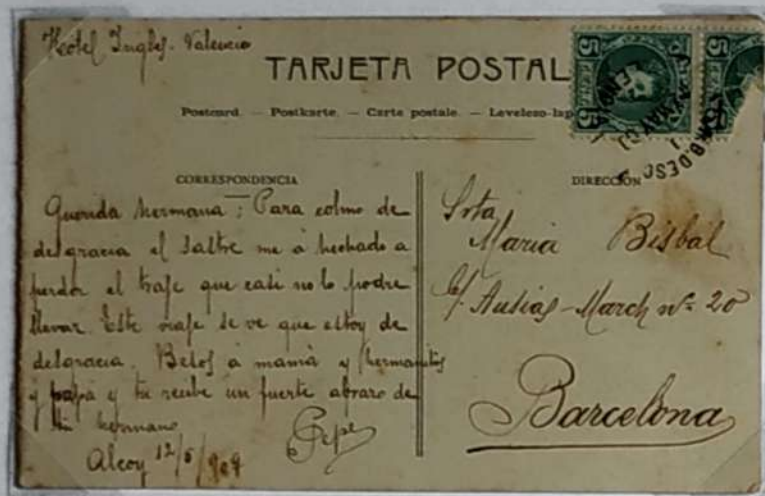 Hotel Ingles - Valencia
TARJETA POSTAL
Postcard. — Postkarte. — Carte postale. — Levelezo-lap
CORRESPONDENCIA
Querida hermana: Para colmo de
desgracia el sastre me á hechado a
perder el traje que casi no lo podre
llevar. Este viaje se ve que estoy de
desgracia. Besos á mamá y hermanitos
y papá y tu recibe un fuerte abrazo de
tu hermano
Pepe
Alcoy 12/5/909
DIRECCIÓN
Srta
Maria Bisbal
c/ Ausias-March nº 20
Barcelona
5 5
5 5